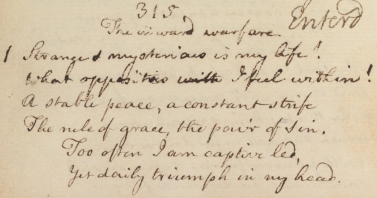 315 Enterd
The inward warfare.
1 Strange & mysterious is my life!
What opposites I feel within!
A stable peace, a constant strife
The rule of grace, the pow'r of sin.
Too often I am captive led,
Yet daily triumph in my head.